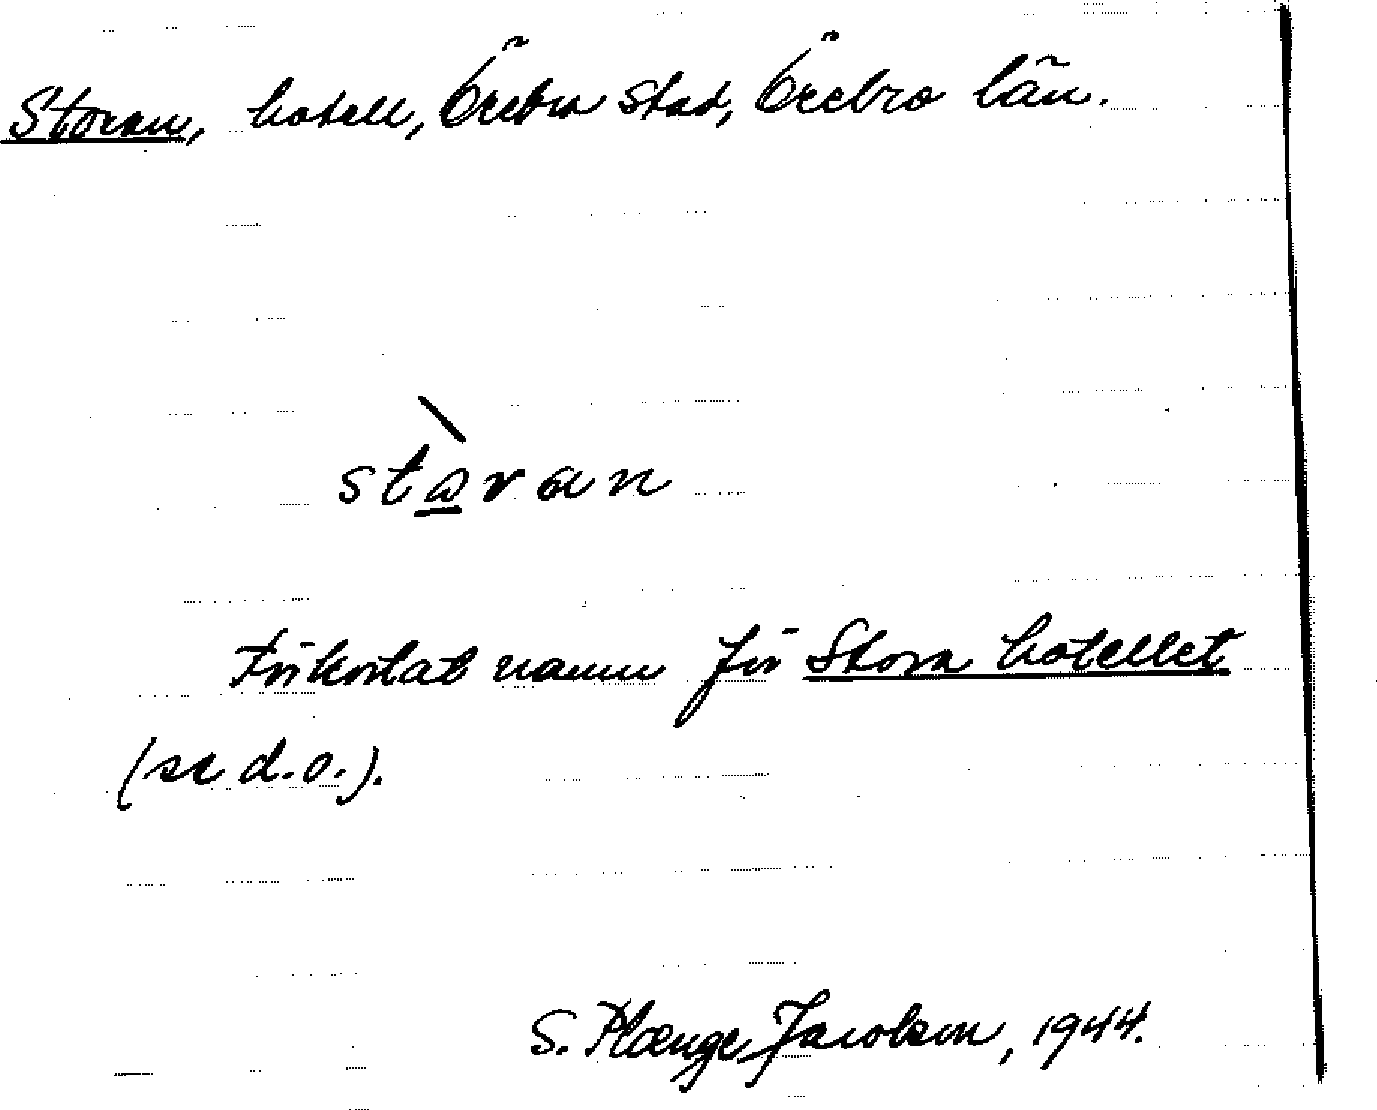 Storan, hotell, Örebro stad, Örebro län.
stòran
Förkortat namn för Stora hotellet
(se d.o.).
S. Plænge Jacobson, 1944.